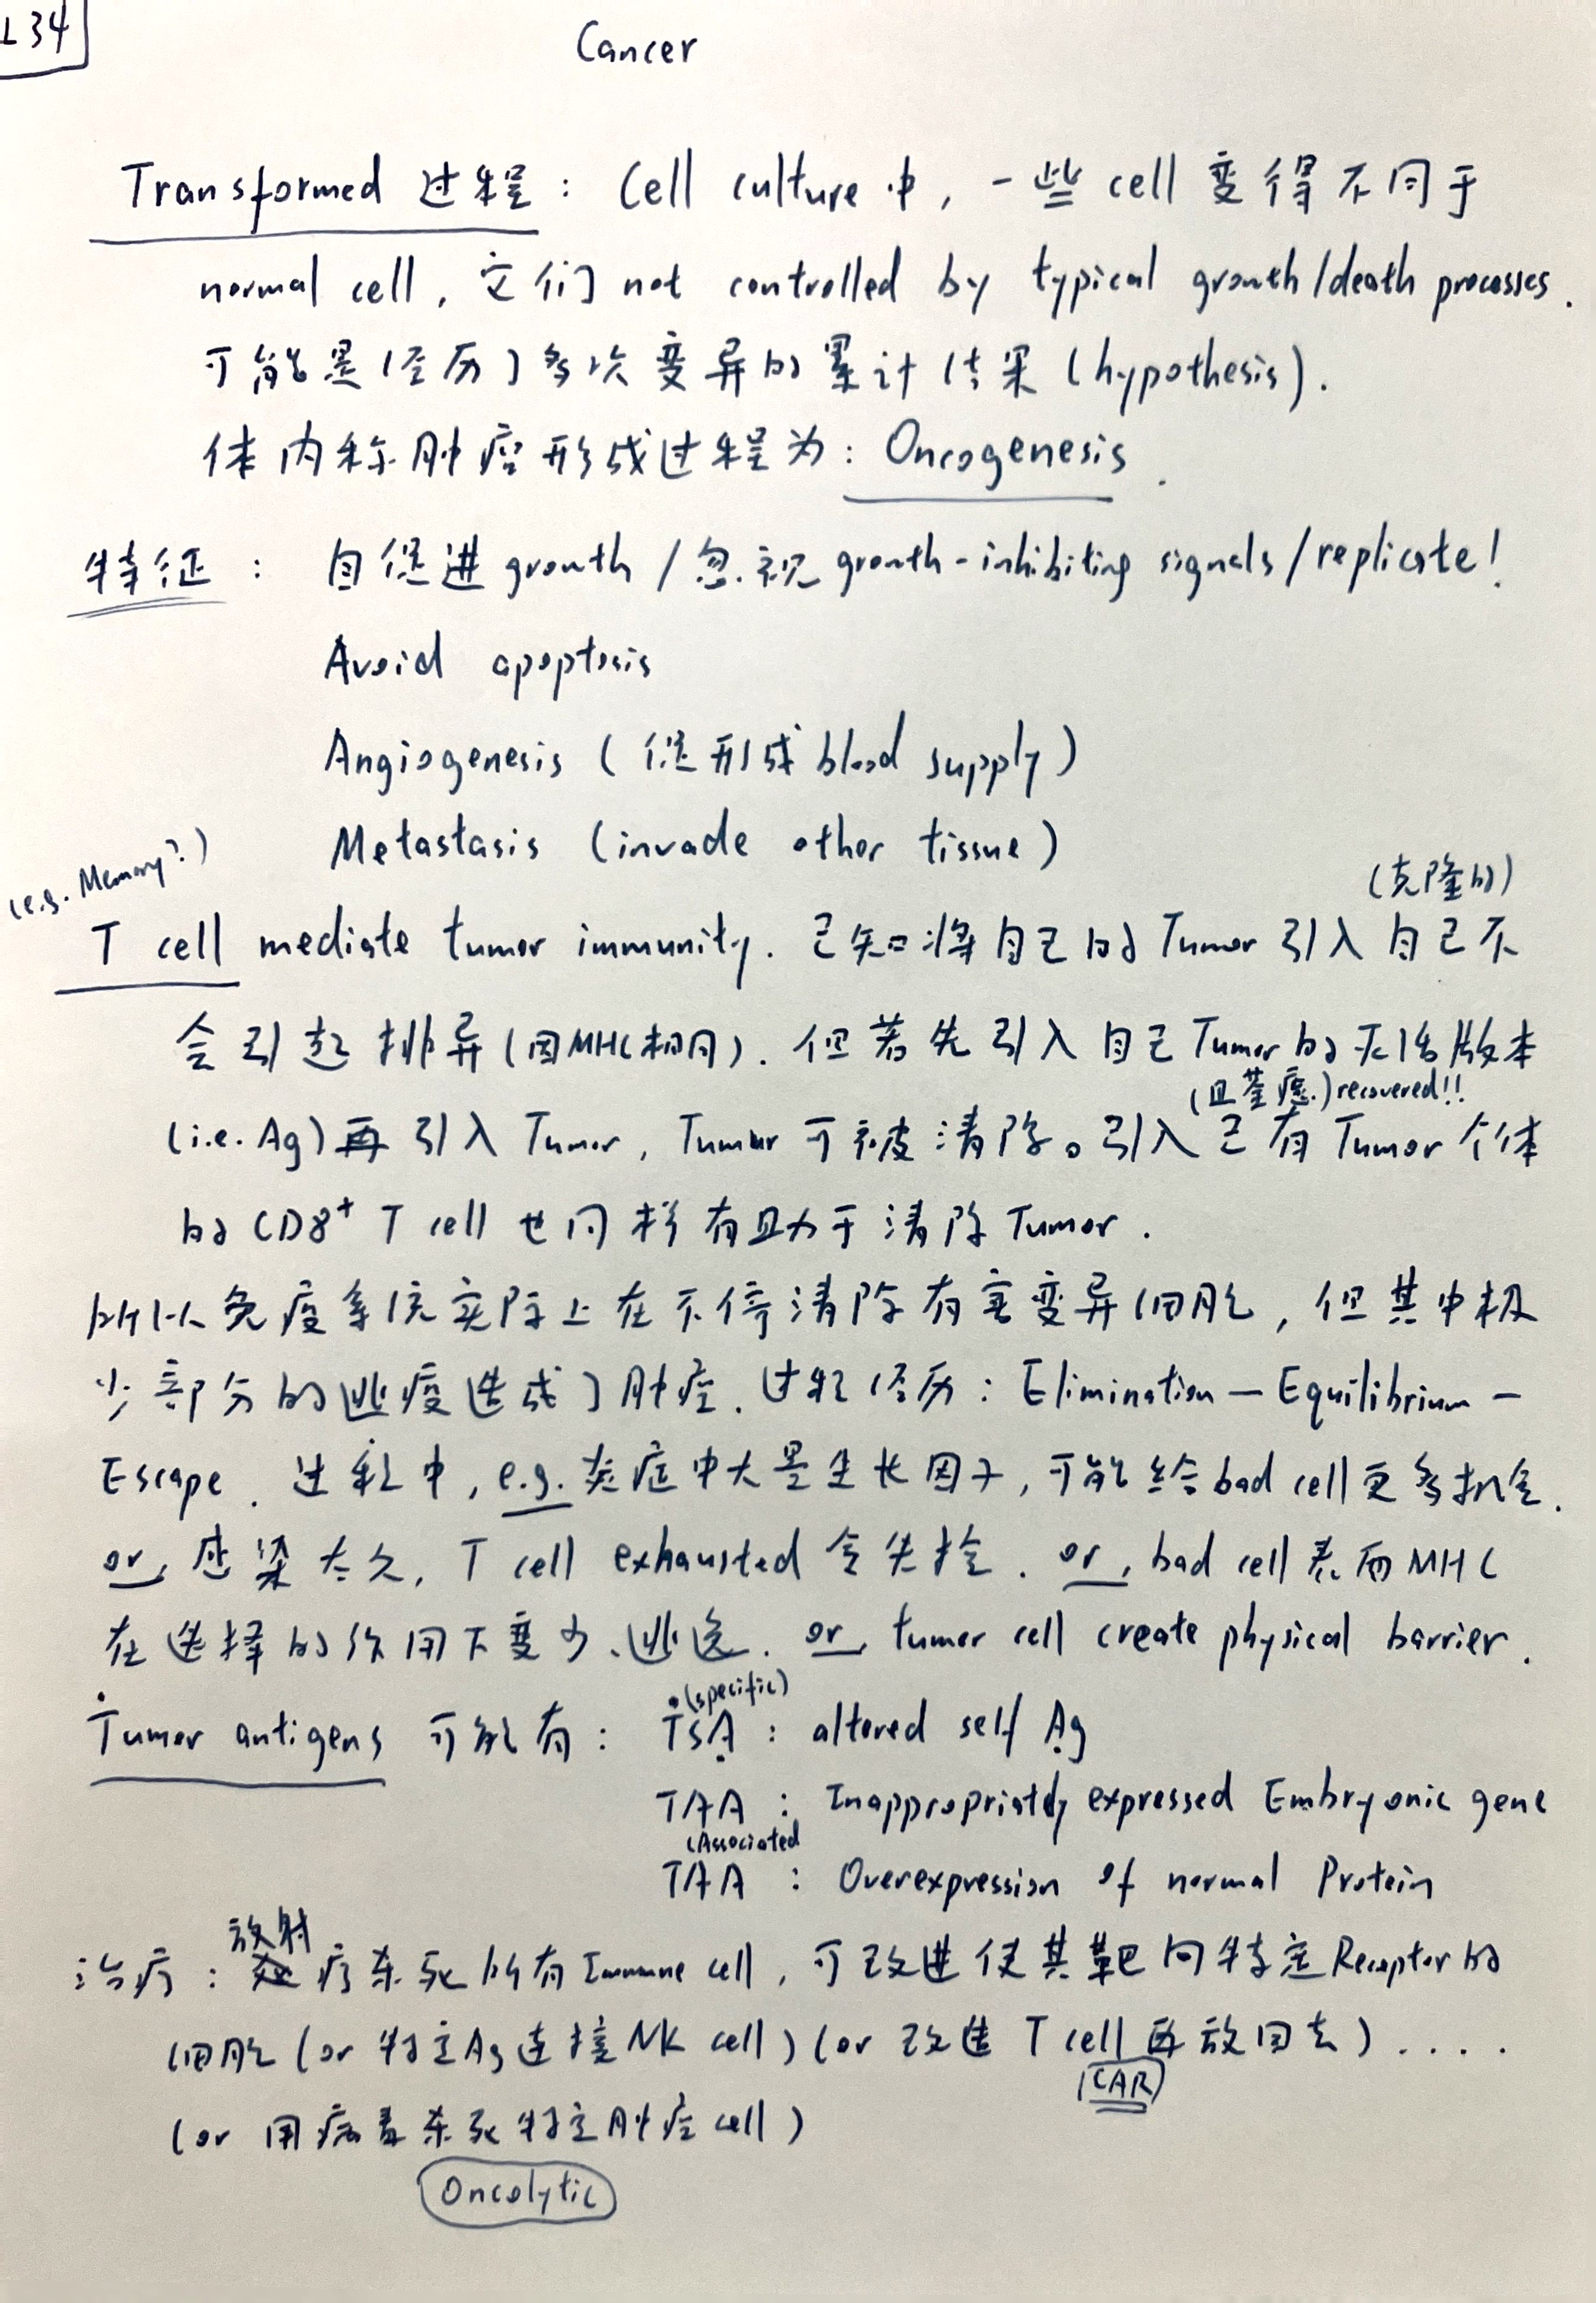 L34
Cancer
Transformed 过程：Cell culture 中，一些 cell 变得不同于
normal cell，它们 not controlled by typical growth/death processes.
可能是经历了多次变异的累计结果 (hypothesis).
体内称肿瘤形成过程为：Oncogenesis.
特征：自促进 growth / 忽视 growth-inhibiting signals/replicate!
Avoid apoptosis
Angiogenesis (促形成 blood supply)
Metastasis (invade other tissue)
(e.g. Memory?)
(克隆的)
T cell mediate tumor immunity. 已知将自己的 Tumor 引入自己不
会引起排异(因MHC相同). 但若先引入自己 Tumor 的灭活版本
(且痊愈.) recovered!!
(i.e. Ag) 再引入 Tumor, Tumor 可被清除。引入已有 Tumor 个体
的 CD8+ T cell 也同样有助于清除 Tumor.
所以免疫系统实际上在不停清除有害变异细胞，但其中极
少部分的逃疫造成了肿瘤. 过程经历：Elimination — Equilibrium —
Escape. 过程中, e.g. 炎症中大量生长因子, 可能给 bad cell 更多机会.
or, 感染太久, T cell exhausted 会失控. or, bad cell 表面 MHC
在选择的作用下变少、逃逸. or, tumor cell create physical barrier.
(specific)
Tumor antigens 可能有： TSA : altered self Ag
TAA : Inappropriately expressed Embryonic gene
(Associated
TAA : Overexpression of normal Protein
放射
治疗：疗杀死所有 Immune cell, 可改进使其靶向特定 Receptor 的
细胞 (or 特定 Ag 连接 NK cell) (or 改造 T cell 再放回去) ....
(CAR)
(or 用病毒杀死特定肿瘤 cell)
Oncolytic